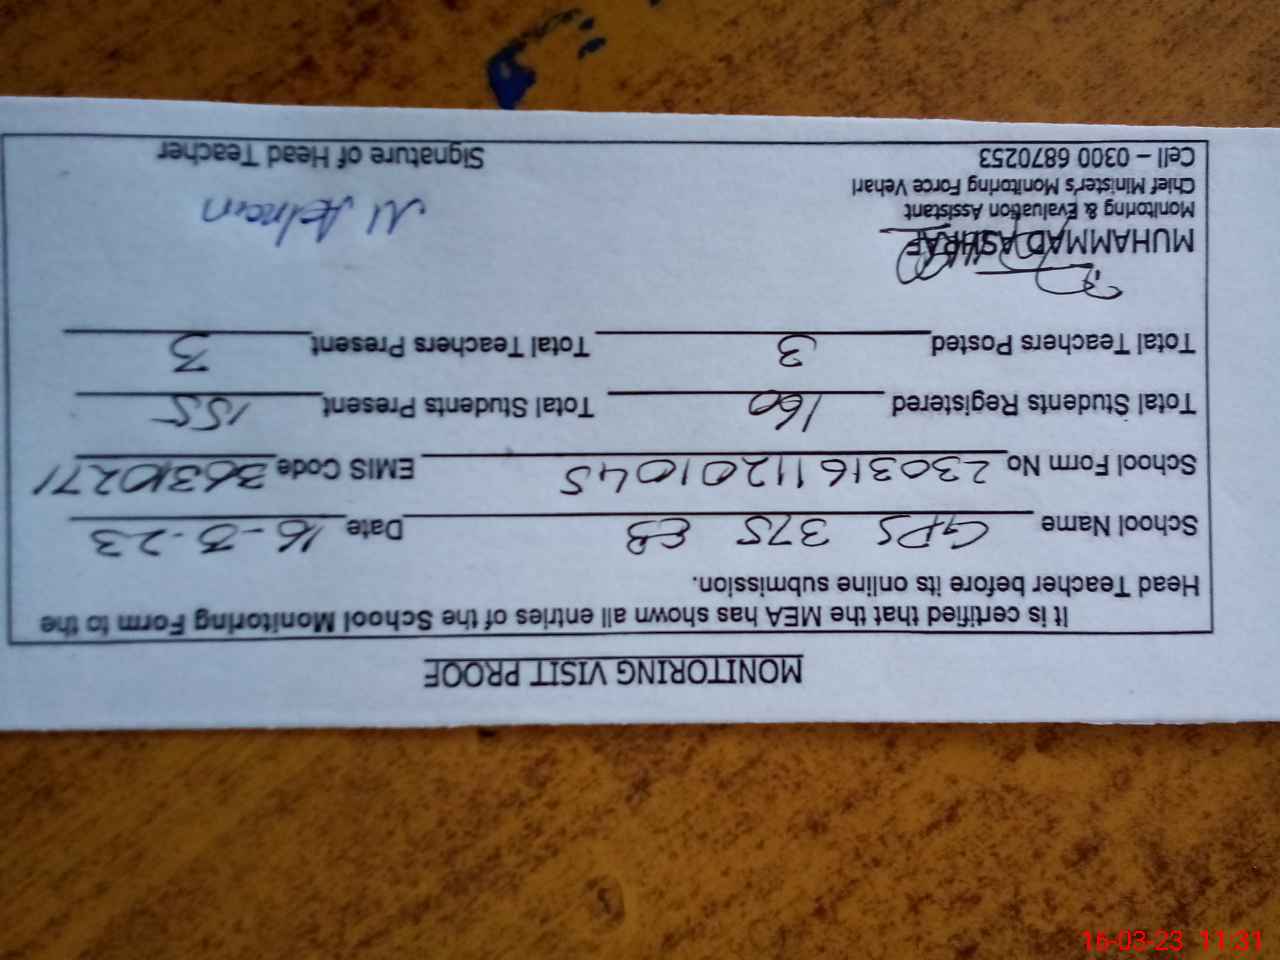 MONITORING VISIT PROOF
It is certified that the MEA has shown all entries of the School Monitoring Form to the
Head Teacher before its online submission.
School Name GPS 375 EB Date 16-3-23
School Form No 23031611201045 EMIS Code 36310271
Total Students Registered 160 Total Students Present 155
Total Teachers Posted 3 Total Teachers Present 3
MUHAMMAD ASHRAF
Monitoring & Evaluation Assistant
Chief Minister's Monitoring Force Vehari
Cell – 0300 6870253
Signature of Head Teacher
16-03-23 11:31